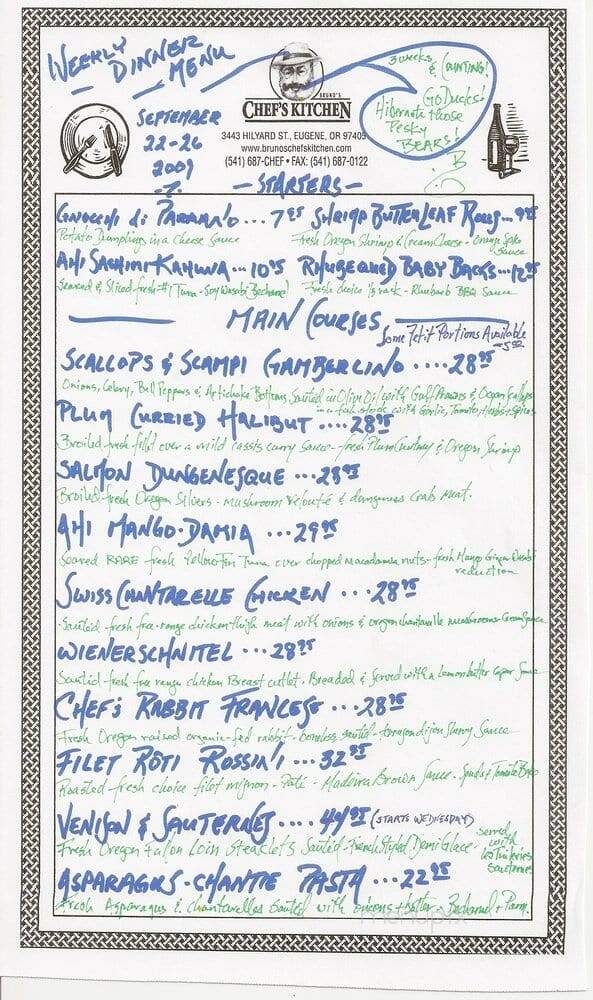 WEEKLY DINNER MENU
SEPTEMBER
22-26
2009
BRUNO'S
CHEF'S KITCHEN
3443 HILYARD ST., EUGENE, OR 97405
www.brunoschefskitchen.com
(541) 687-CHEF • FAX: (541) 687-0122
3 weeks
& COUNTING!
GO DUCKS!
Hibernate those
PESKY
BEARS!
B
- STARTERS -
GNOCCHI di PARMANO ... 7 95 SHRIMP BUTTER LEAF ROLLS ... 9 95
Potato Dumplings in a Cheese Sauce
Fresh Oregon Shrimp & Cream Cheese - Orange Sauce
AHI SASHIMI KAHUNA ... 10 95 RHUBEQUED BABY BACKS ... 12 95
Seared & Sliced fresh #1 Tuna - Soy Wasabi Bechamel
Fresh choice ½ rack - Rhubarb BBQ Sauce
MAIN COURSES
Some Petit Portions Available
SCALLOPS & SCAMPI GAMBERLINO .... 28 95
Onions, Celery, Bell Peppers & Artichoke Bottoms, Sautéed in Olive Oil with Gulf Prawns & Ocean Scallops
in a fish stock with Garlic, Tomato, Herbs & Spices
PLUM CURRIED HALIBUT .... 28 95
Broiled fresh fillet over a mild cassis curry sauce - fresh Plum Chutney & Oregon Shrimp
SALMON DUNGENESQUE ... 28 95
Broiled fresh Oregon Silvers - mushroom velouté & dungeness Crab Meat.
AHI MANGO-DAMIA ... 29 95
Seared RARE fresh Yellow Fin Tuna over chopped macadamia nuts - fresh Mango Ginger Wasabi
reduction
SWISS CHANTARELLE CHICKEN ... 28 95
Sautéed fresh free-range chicken thigh meat with onions & oregon chantarelle mushrooms - Cream Sauce
WIENERSCHNITEL ... 28 95
Sautéed fresh free range chicken Breast cutlet. Breaded & Served with a Lemon butter Caper Sauce
CHEF'S RABBIT FRANCESE ... 28 95
Fresh Oregon raised organic-fed rabbit - boneless sautéed - tarragon dijon Sherry Sauce
FILET RÔTI ROSSINI ... 32 95
Roasted fresh choice filet mignon - Paté - Madeira Brown Sauce
VENISON & SAUTERNES .... 44 95 (STARTS WEDNESDAY)
Fresh Oregon Fallon Loin Steaklets Sautéed - French Styled Demi Glace
served
with
Sauterne
ASPARAGUS - CHANTIE PASTA ... 22 95
Fresh Asparagus & chantarelles Sautéed with onions + butter - Bechamel + Parm.